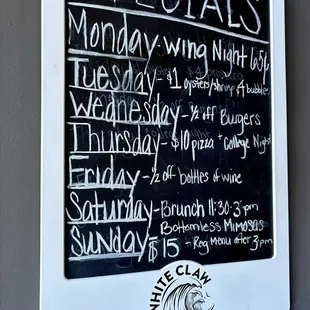 SPECIALS
Monday-Wing Night 65¢
Tuesday-$1 oysters/shrimp $4 bubbles
Wednesday-½ off Burgers
Thursday-$10 pizza + College Night
Friday-½ off bottles of wine
Saturday-Brunch 11:30-3pm
Bottomless Mimosas
Sunday $15 - Reg menu after 3pm
WHITE CLAW